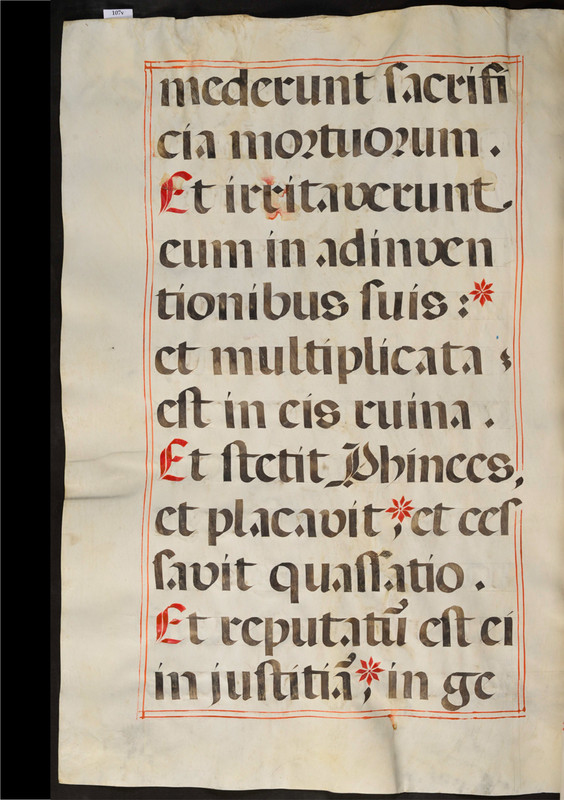 107v
mederunt ſacrifi
cia mortuorum .
Et irritaverunt
cum in adinven
tionibus ſuis : *
et multiplicata
eſt in eis ruina .
Et ſtetit Phinees,
et placavit ; * et ceſ
ſavit quaſſatio .
Et reputatũ eſt ei
in juſtitiã ; * in ge